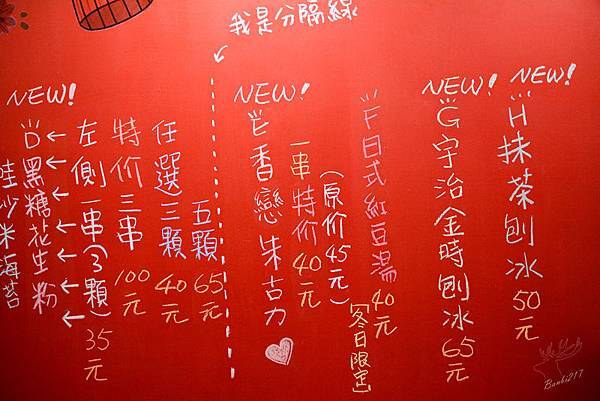 我是分隔線
NEW!
H抹茶刨冰50元
NEW!
G宇治金時刨冰65元
F日式紅豆湯40元
【冬日限定】
(原价45元)
一串特价40元
NEW!
E香戀朱古力
五顆65元
任選三顆40元
特价三串100元
左側一串(3顆)35元
NEW!
D黑糖花生粉
哇沙米海苔
Bambi217